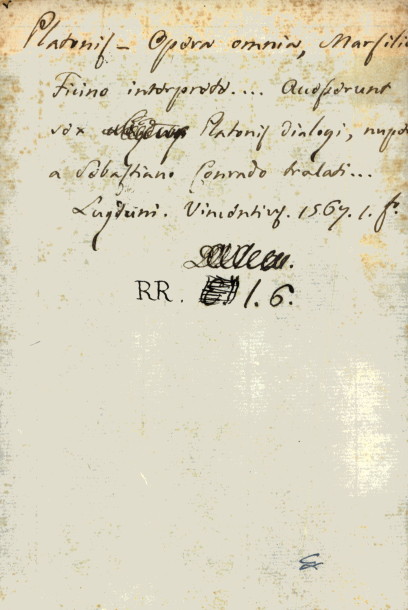 Platonis — Opera omnia, Marsilio
Ficino interprete.... Accesserunt
sex Platonis dialogi, nuper
a Sebastiano Conrado tralati...
Lugduni. Vincentius. 1567. 1. fo
RR. 1. 6.